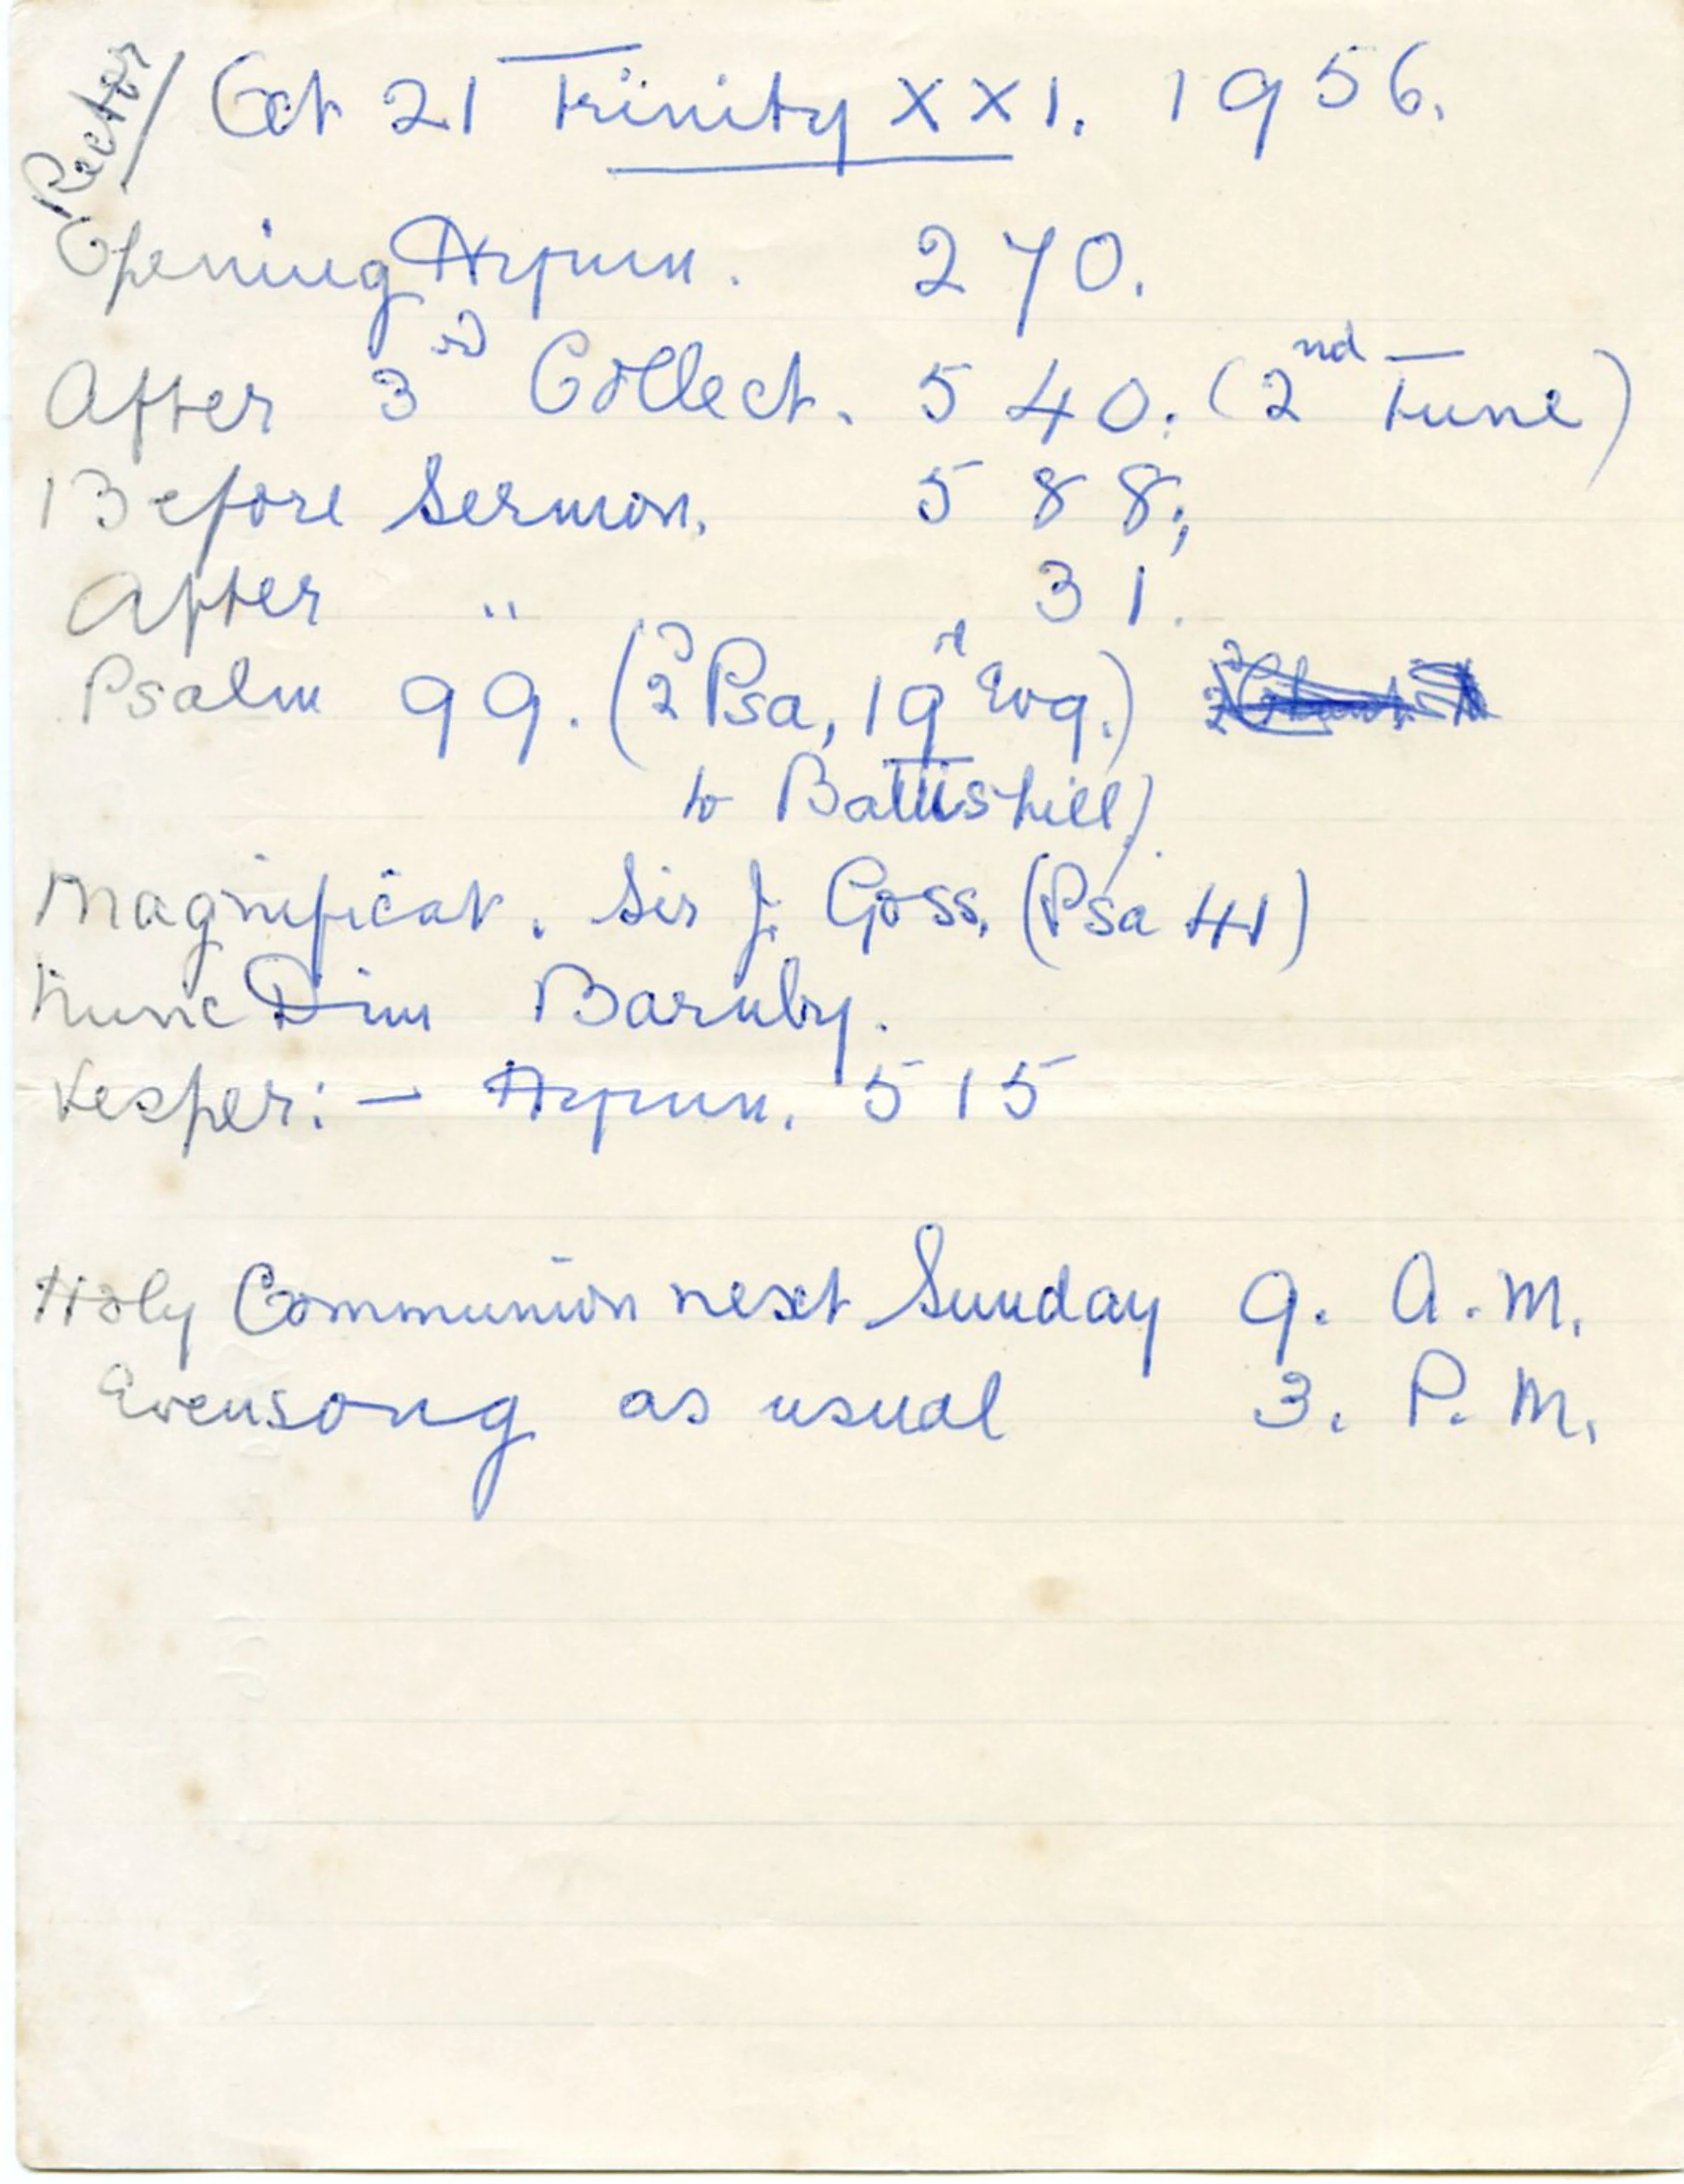 Rector/
Oct 21 Trinity XXI. 1956.
Opening Hymn. 270.
After 3rd Collect. 540. (2nd Tune)
Before Sermon. 588;
After " 31.
Psalm 99. (2d Psa, 19th Evg.)
to Battishill).
Magnificat. Sir J. Goss, (Psa 41)
Nunc Dim Barnby.
Vesper:- Hymn. 515
Holy Communion next Sunday 9. A.M.
Evensong as usual 3. P.M.